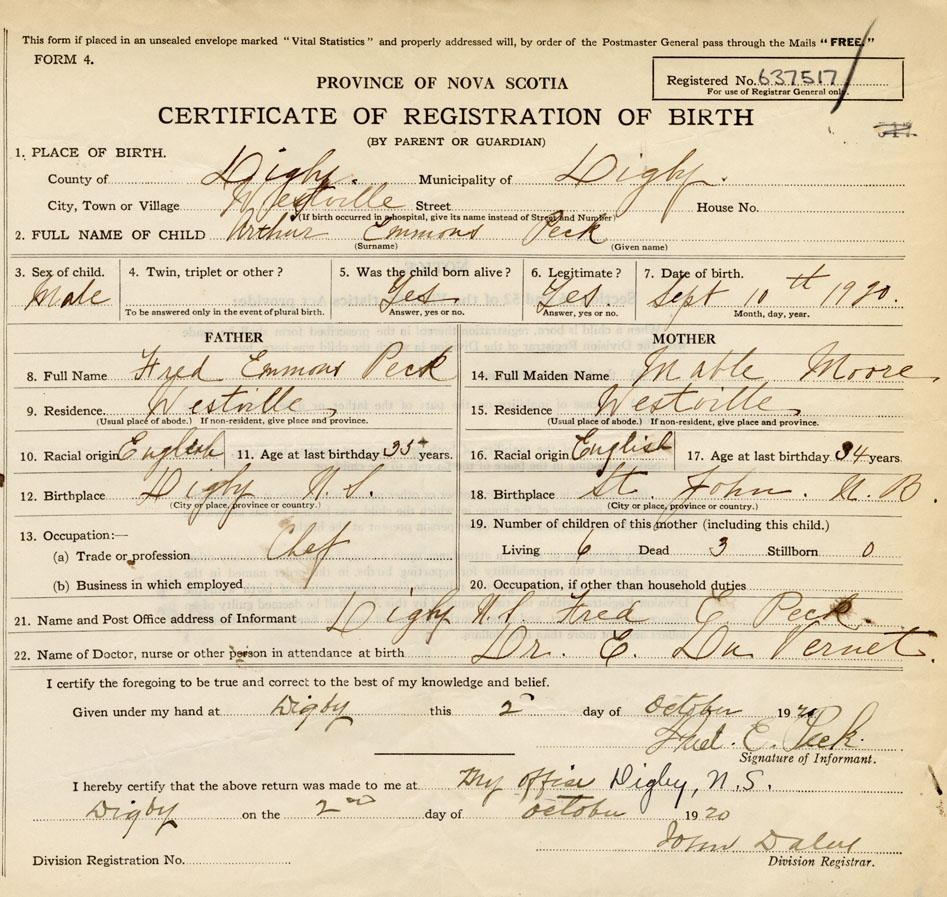 This form if placed in an unsealed envelope marked "Vital Statistics" and properly addressed will, by order of the Postmaster General pass through the Mails "FREE."
FORM 4.
Registered No. 637517
For use of Registrar General only.
PROVINCE OF NOVA SCOTIA
CERTIFICATE OF REGISTRATION OF BIRTH
(BY PARENT OR GUARDIAN)
1. PLACE OF BIRTH.
County of Digby. Municipality of Digby.
City, Town or Village Westville Street House No.
(If birth occurred in a hospital, give its name instead of Street and Number)
2. FULL NAME OF CHILD Arthur Emmons Peck
(Surname) (Given name)
3. Sex of child. 4. Twin, triplet or other? 5. Was the child born alive? 6. Legitimate? 7. Date of birth.
Male Yes Yes Sept 10th 1920.
To be answered only in the event of plural birth. Answer, yes or no. Answer, yes or no. Month, day, year.
FATHER MOTHER
8. Full Name Fred Emmons Peck 14. Full Maiden Name Mable Moore
9. Residence. Westville 15. Residence Westville
(Usual place of abode.) If non-resident, give place and province. (Usual place of abode.) If non-resident, give place and province.
10. Racial origin English 11. Age at last birthday 35 years. 16. Racial origin English 17. Age at last birthday 34 years.
12. Birthplace Digby N.S. 18. Birthplace St. John. N.B.
(City or place, province or country.) (City or place, province or country.)
13. Occupation:— 19. Number of children of this mother (including this child.)
(a) Trade or profession Chef Living 6 Dead 3 Stillborn 0
(b) Business in which employed 20. Occupation, if other than household duties
21. Name and Post Office address of Informant Digby N.S. Fred E. Peck.
22. Name of Doctor, nurse or other person in attendance at birth Dr. E. Du Vernet.
I certify the foregoing to be true and correct to the best of my knowledge and belief.
Given under my hand at Digby this 2 day of October 1920
Fred. E. Peck.
Signature of Informant.
I hereby certify that the above return was made to me at My office Digby, N.S.
Digby on the 2nd day of October 1920
John Daley
Division Registrar.
Division Registration No.